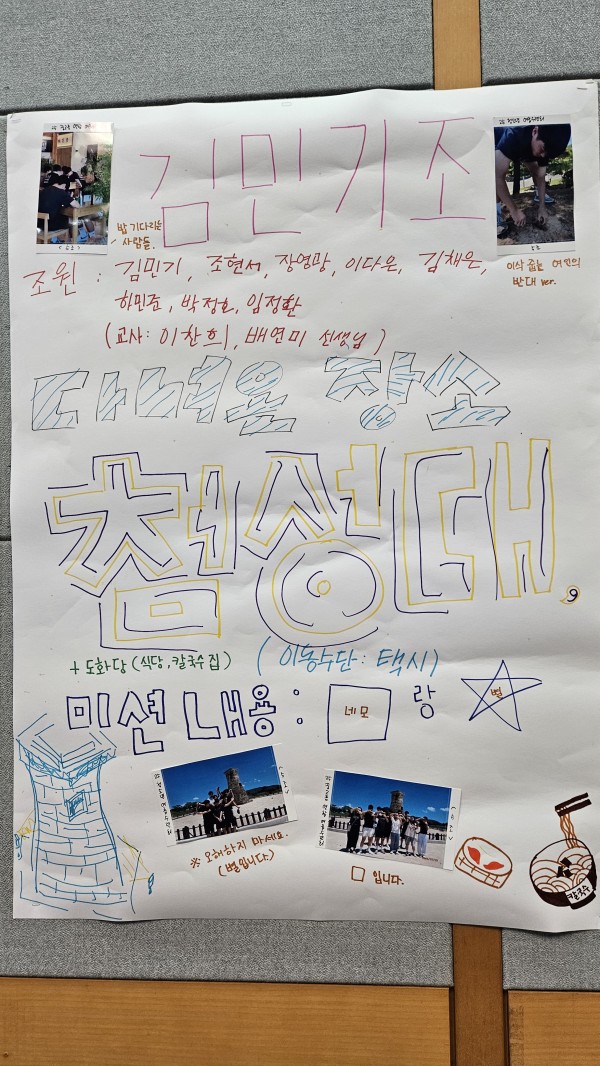 김민기조
밥 기다리는
사람들.
이삭 줍는 여인의
반대 ver.
조원 : 김민기, 조현서, 장영광, 이다은, 김채은,
하민준, 박정호, 임정환
(교사: 이찬희, 배연미 선생님)
다녀온 장소
첨성대,
+ 도화당 (식당, 칼국수집)
(이동수단: 택시)
미션 내용 : 네모 랑 별
※ 오해하지 마세요.
(별입니다.)
□ 입니다.
칼국수